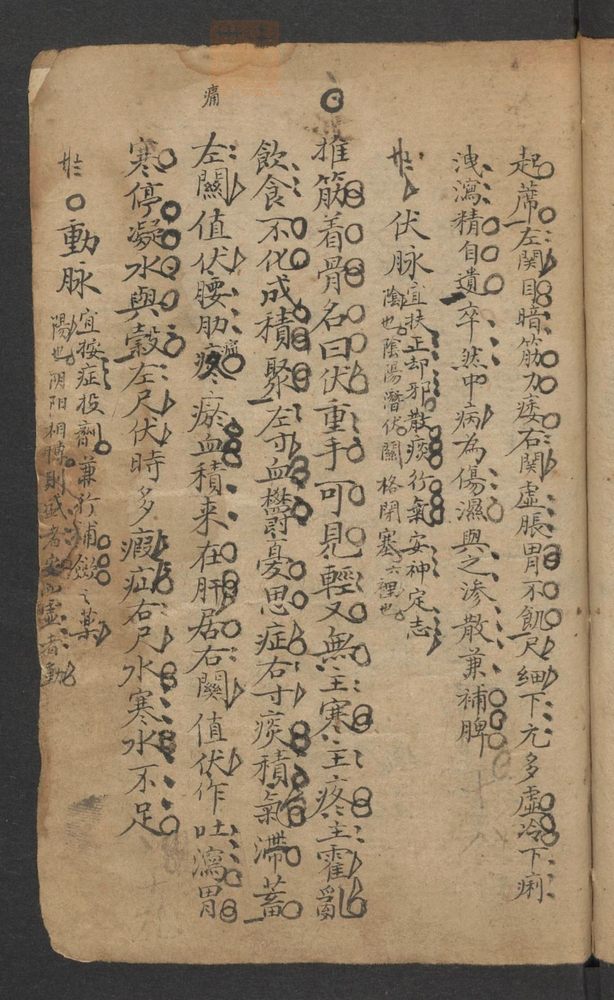 起蓆左関目暗筋力痿右関虚脹胃不飢尺細下元多虚冷下痢
洩瀉精自遺卒然中病為傷濕與之渗散兼補脾
伏脉
宜扶正却邪散痰行氣安神定志
陰也陰陽潛伏關格閉塞六裡也
推筋着骨名曰伏重手可見輕又無主寒主疼主霍亂
飲食不化成積聚左寸血鬱憂思症右寸痰積氣滯蓄
左關值伏腰肋疼瘀血積来在肝居右關值伏作吐瀉胃
痛
寒停凝水與穀左尺伏時多瘕疝右尺水寒水不足
動脉
宜按症投劑兼行補斂之藥
陽也阴阳相搏則 者安 虛者動